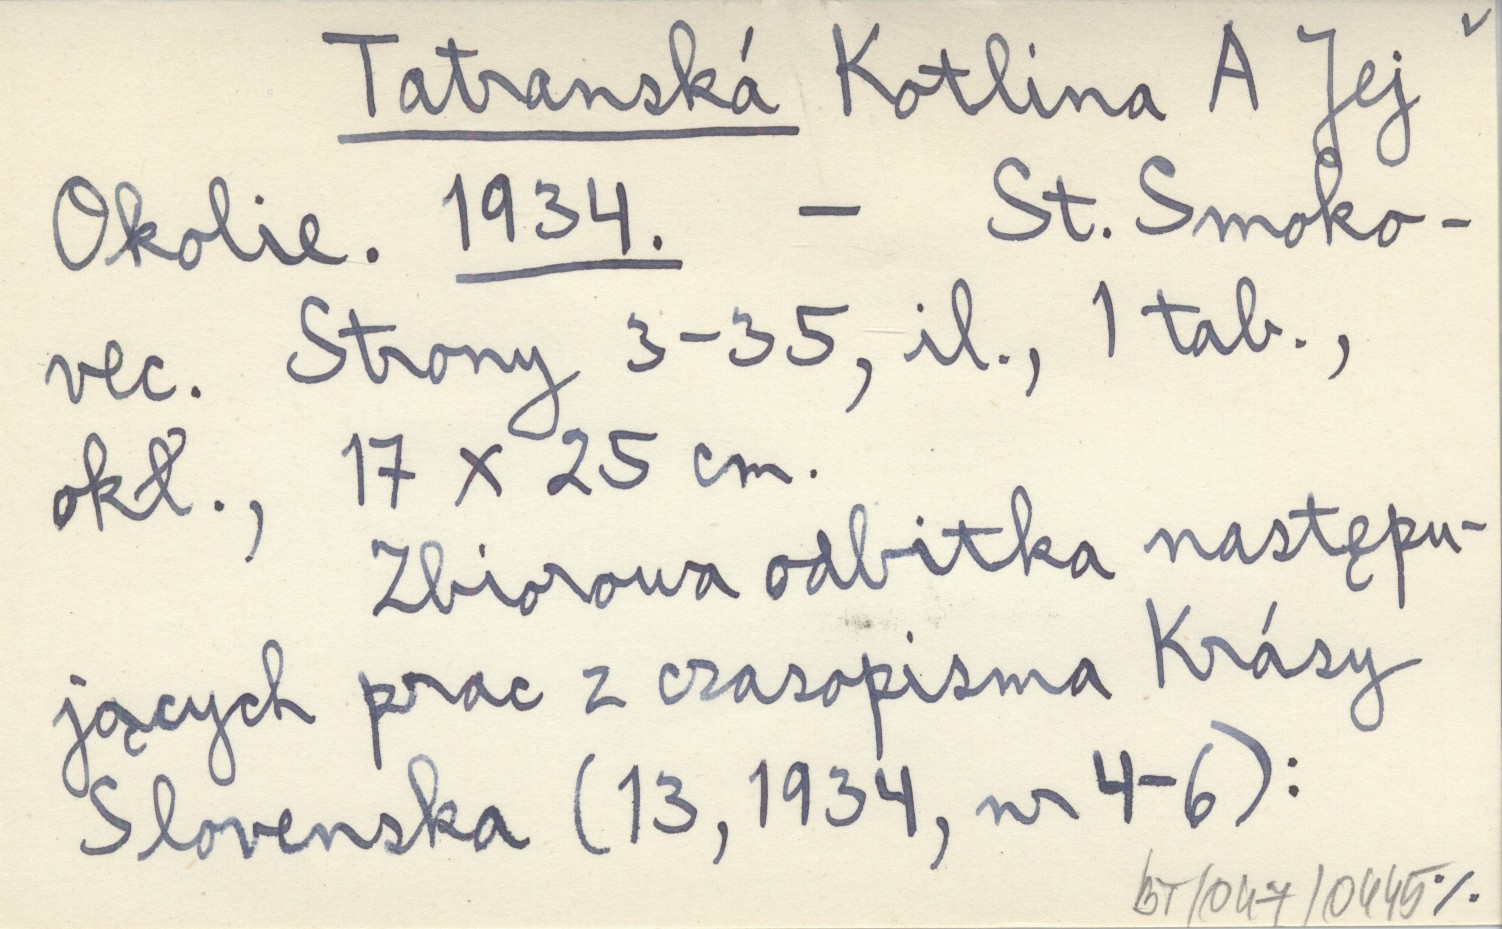 Tatranská Kotlina A Jej
Okolie. 1934. – St. Smoko-
vec. Strony 3–35, il., 1 tab.,
okł., 17 x 25 cm.
Zbiorowa odbitka następu-
jących prac z czasopisma Krásy
Slovenska (13, 1934, nr 4–6):
BT/047/0445 ./.